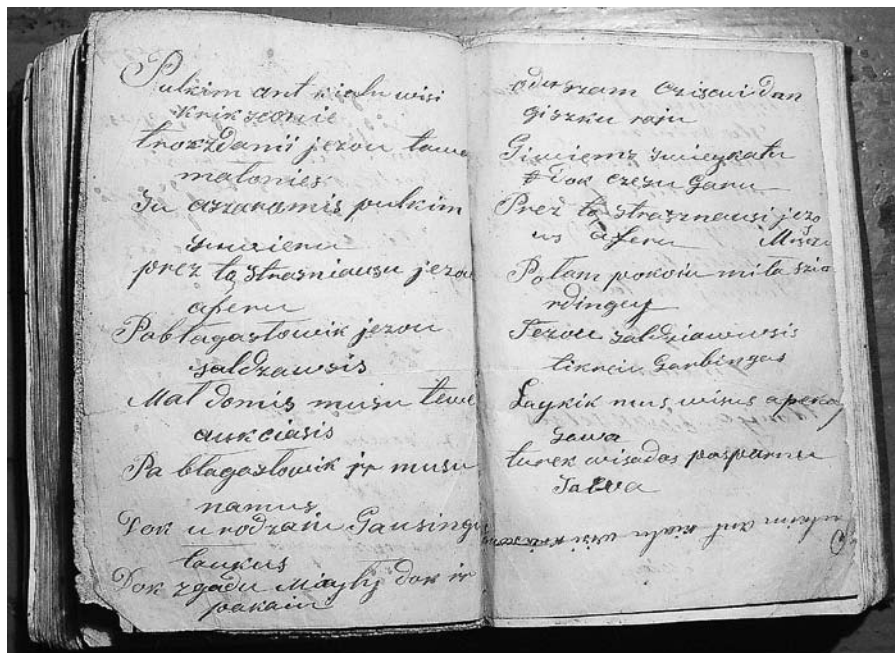 Pulkim ant kialu wisi
krikscionie
trokzdanii jezou tawa
malonies
Su aszaromis pulkim
zmieniu
prez tą strasniausu jezou
aferu
Pabłagasłowik jezou
saldzawsis
Mal domis musu tewe
aukciasis
Pa błagasłowik ir musu
namus
Dok urodzaiu Gausingu
laukus
Dok zgadu Mayly dok ir
pakaiu
szam czisowi dan
giszku raju
Giwiems swieykatu
Dok czesu garu
Prez tą strasznausi jezo
us aferu
Potam pokoiu mila szia
rdingay
Jezou saldziawusis
tikrai Garbingas
Laykik mus wisus apeko
sawa
turek wisadas pasparnu
Sawa
ulkim ant kialu wisi